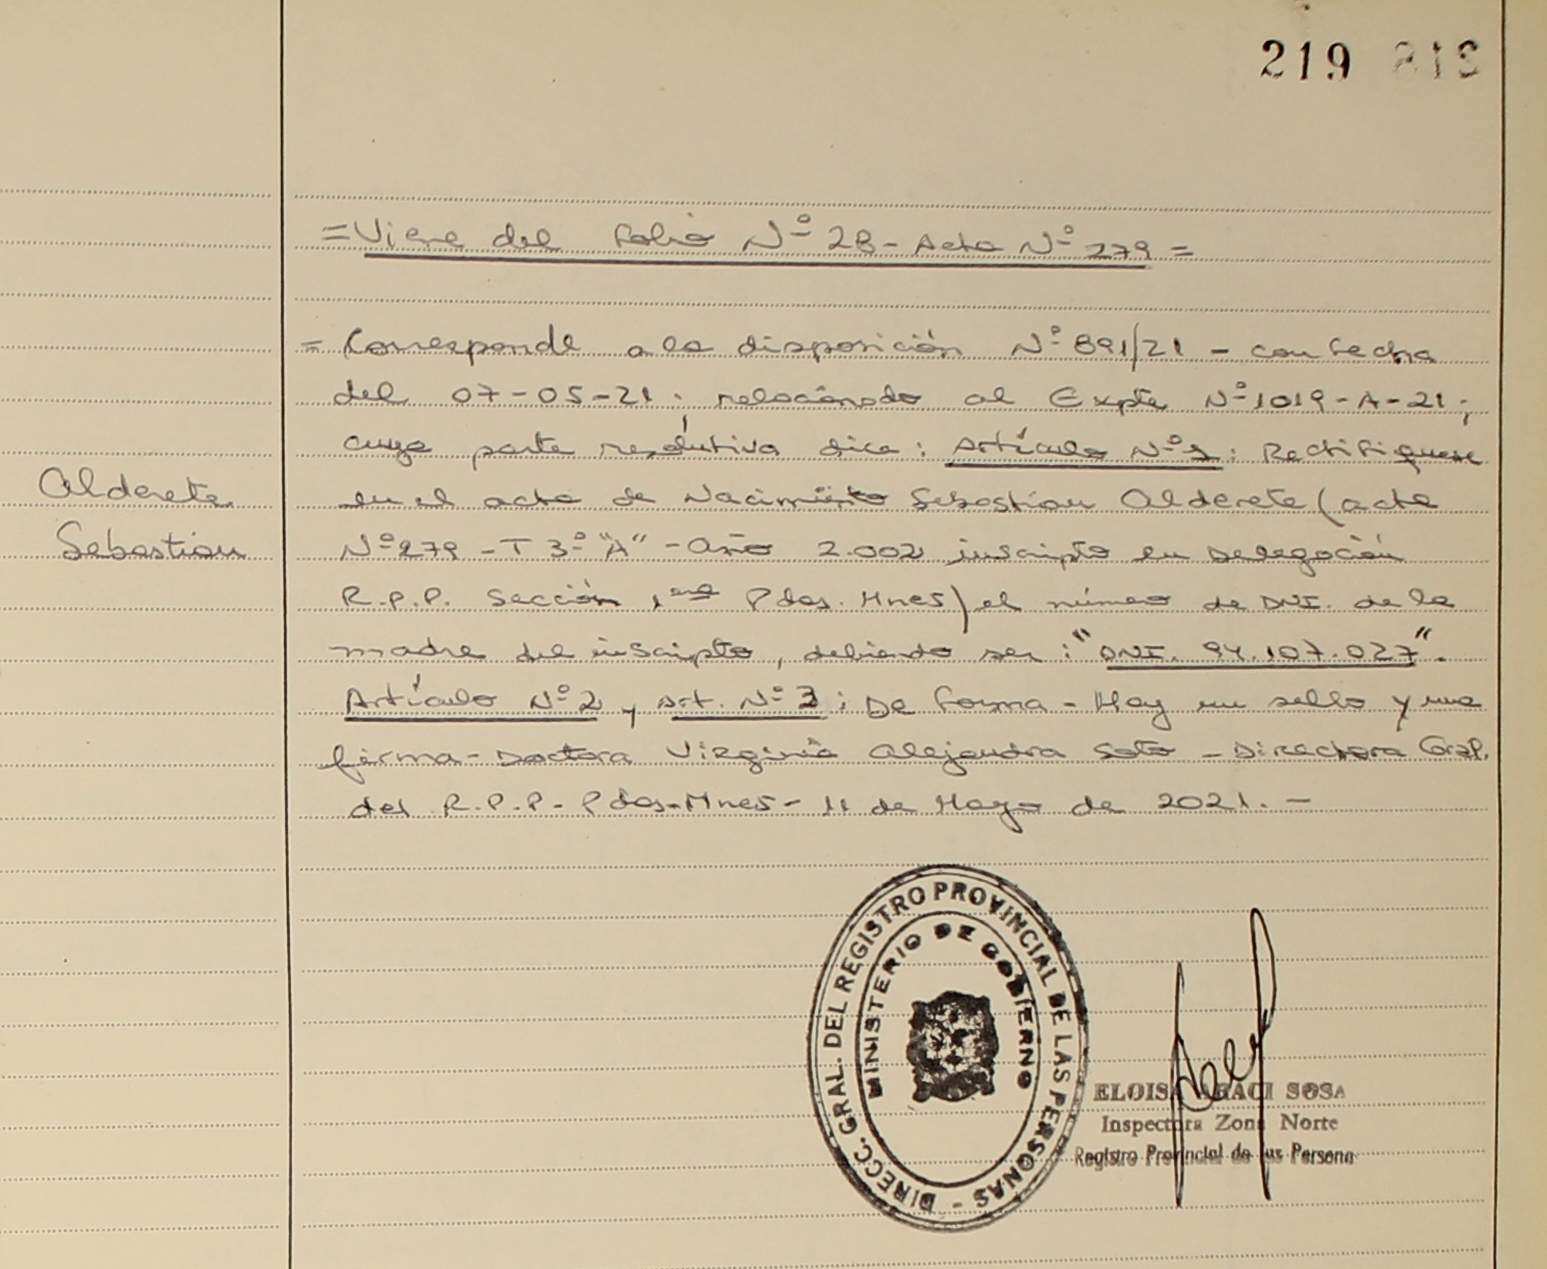 219 218
=Viene del Folio Nº 28-Acta Nº 279=
= Corresponde a la disposición Nº 891/21 - con fecha
del 07-05-21; relacionado al Expte Nº 1019-A-21;
cuya parte resolutiva dice: Artículo Nº 1: Rectifíquese
Alderete
Sebastian
en el acta de Nacimiento Sebastian Alderete (acta
Nº 279 - T 3º "A" - Año 2.002 inscripto en Delegación
R.P.P. Sección 1era Pdas. Mnes) el número de DNI. de la
madre del inscripto, debiendo ser: "DNI. 94.107.027".
Artículo Nº 2 y Art. Nº 3: De Forma - Hay un sello y una
firma - Doctora Virginia Alejandra Soto - Directora Gral.
del R.P.P- Pdas-Mnes- 11 de Mayo de 2021. -
DIRECC. GRAL. DEL REGISTRO PROVINCIAL DE LAS PERSONAS -
MINISTERIO DE GOBIERNO
ELOISA ARACI SOSA
Inspectora Zona Norte
Registro Provincial de las Persona